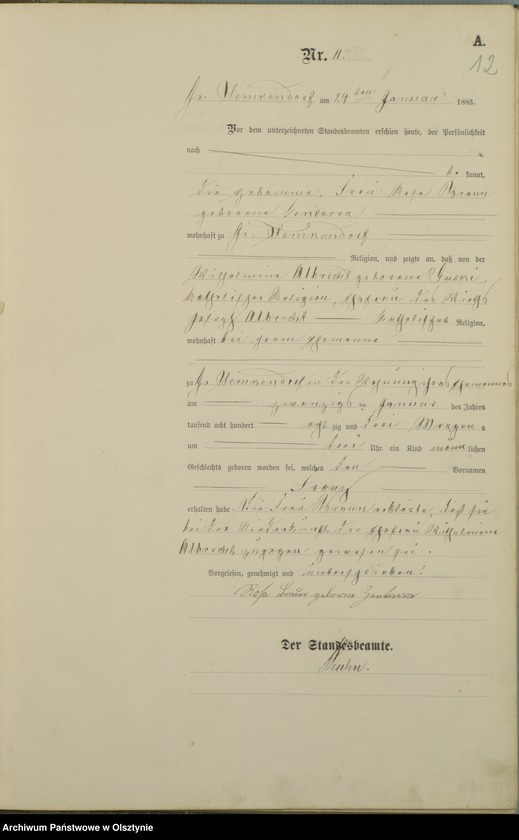 A.
12
Nr. 11.
Gr. Lemkendorf am 24ten Januar 1883.
Vor dem unterzeichneten Standesbeamten erschien heute, der Persönlichkeit
nach
be kannt,
die Hebamme, Frau Rosa
geborene
wohnhaft zu Gr. Lemkendorf
Religion, und zeigte an, daß von der
Wilhelmine Albrecht geborene
katholischer Religion, Ehefrau des
Joseph Albrecht katholischer Religion,
wohnhaft bei ihrem Ehemanne
zu Gr. Lemkendorf in der Wohnung ihres Ehemannes
am zwanzigsten Januar des Jahres
tausend acht hundert acht zig und drei Morgens
um drei Uhr ein Kind männlichen
Geschlechts geboren worden sei, welches den Vornamen
Franz
erhalten habe. Die Frau erklärte, daß sie
bei der Niederkunft der Ehefrau Wilhelmine
Albrecht zugegen gewesen sei.
Vorgelesen, genehmigt und unterschrieben:
Rosa geborene
Der Standesbeamte.
Archiwum Państwowe w Olsztynie